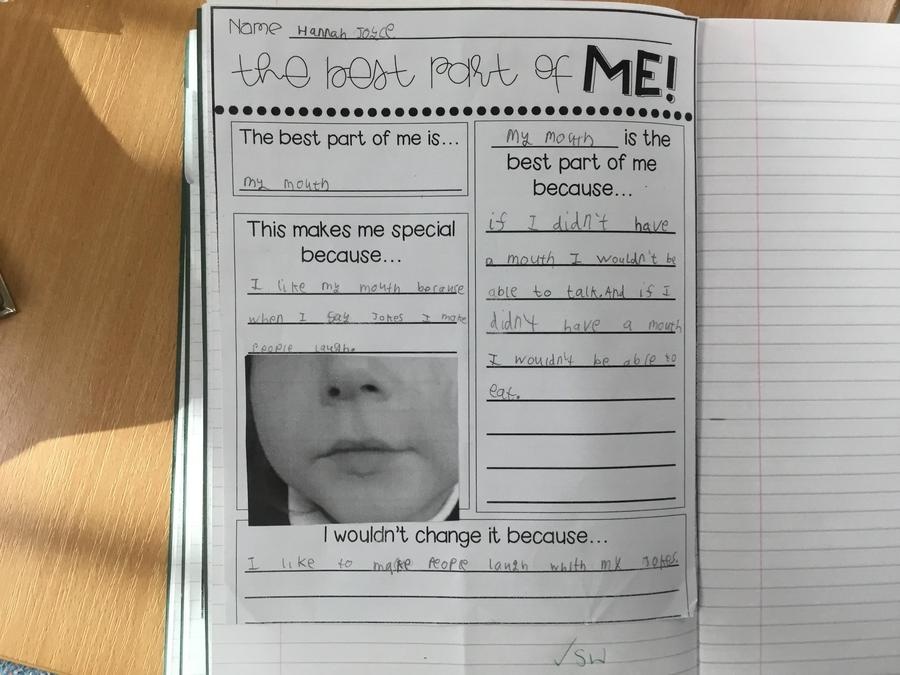 Name Hannah Joyce
the best part of ME!
The best part of me is...
my mouth
This makes me special
because...
I like my mouth because
when I say Jokes I make
People laugh.
my mouth is the
best part of me
because...
if I didn't have
a mouth I wouldn't be
able to talk. And if I
didn't have a mouth
I wouldn't be able to
eat.
I wouldn't change it because...
I like to make People laugh whith my Jokes.
✓SW